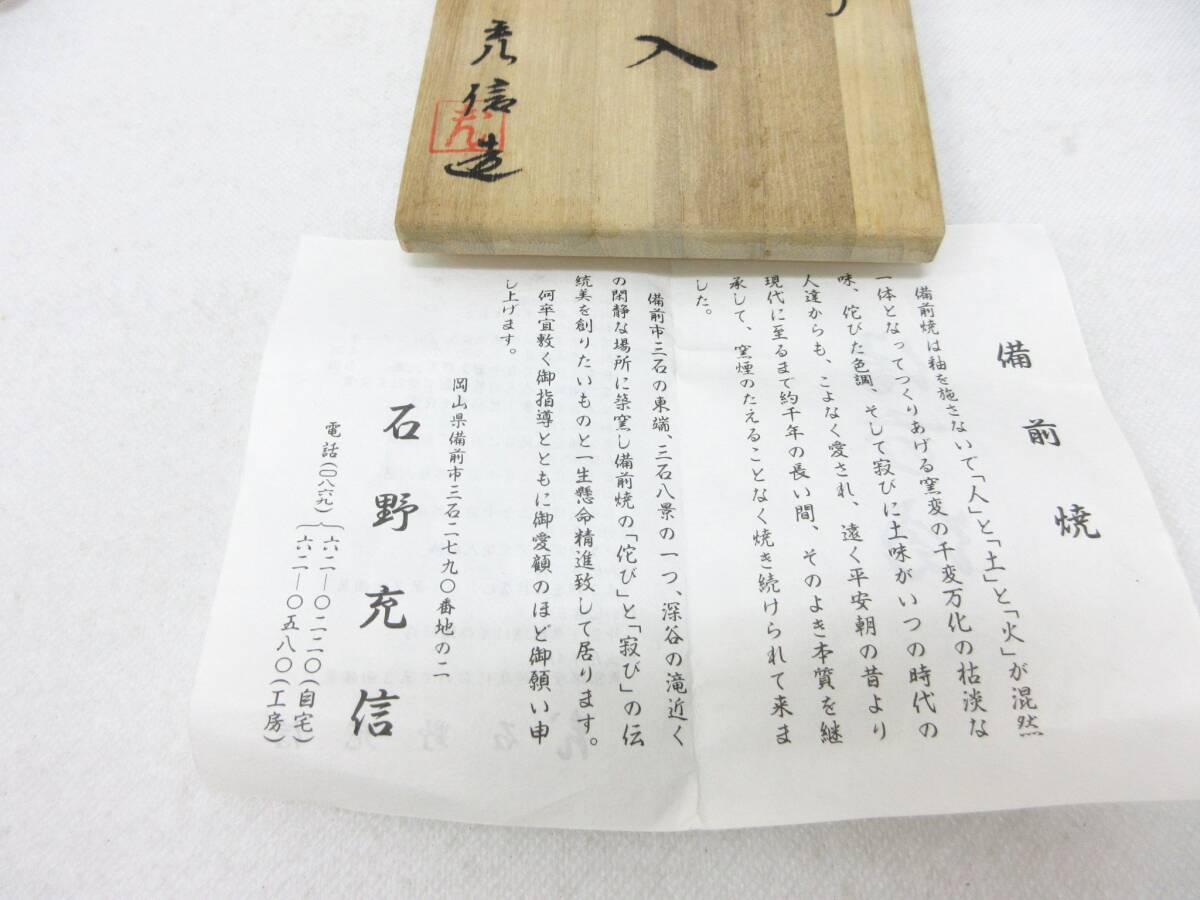 入
充信造
備前焼
備前焼は釉を施さないで「人」と「土」と「火」が混然
一体となってつくりあげる窯変の千変万化の枯淡な
味、侘びた色調、そして寂びに土味がいつの時代の
人達からも、こよなく愛され、遠く平安朝の昔より
現代に至るまで約千年の長い間、そのよき本質を継
承して、窯煙のたえることなく焼き続けられて来ま
した。
備前市三石の東端、三石八景の一つ、深谷の滝近く
の閑静な場所に築窯し備前焼の「侘び」と「寂び」の伝
統美を創りたいものと一生懸命精進致して居ります。
何卒宜敷く御指導とともに御愛顧のほど御願い申
し上げます。
岡山県備前市三石二七九〇番地の二
石野充信
電話(〇八六九)
六二―〇二二〇(自宅)
六二―〇五八〇(工房)